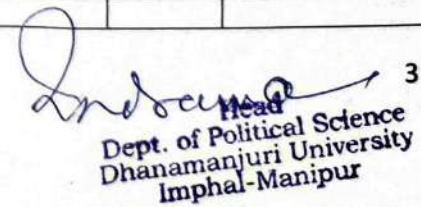 3
Head
Dept. of Political Science
Dhanamanjuri University
Imphal-Manipur